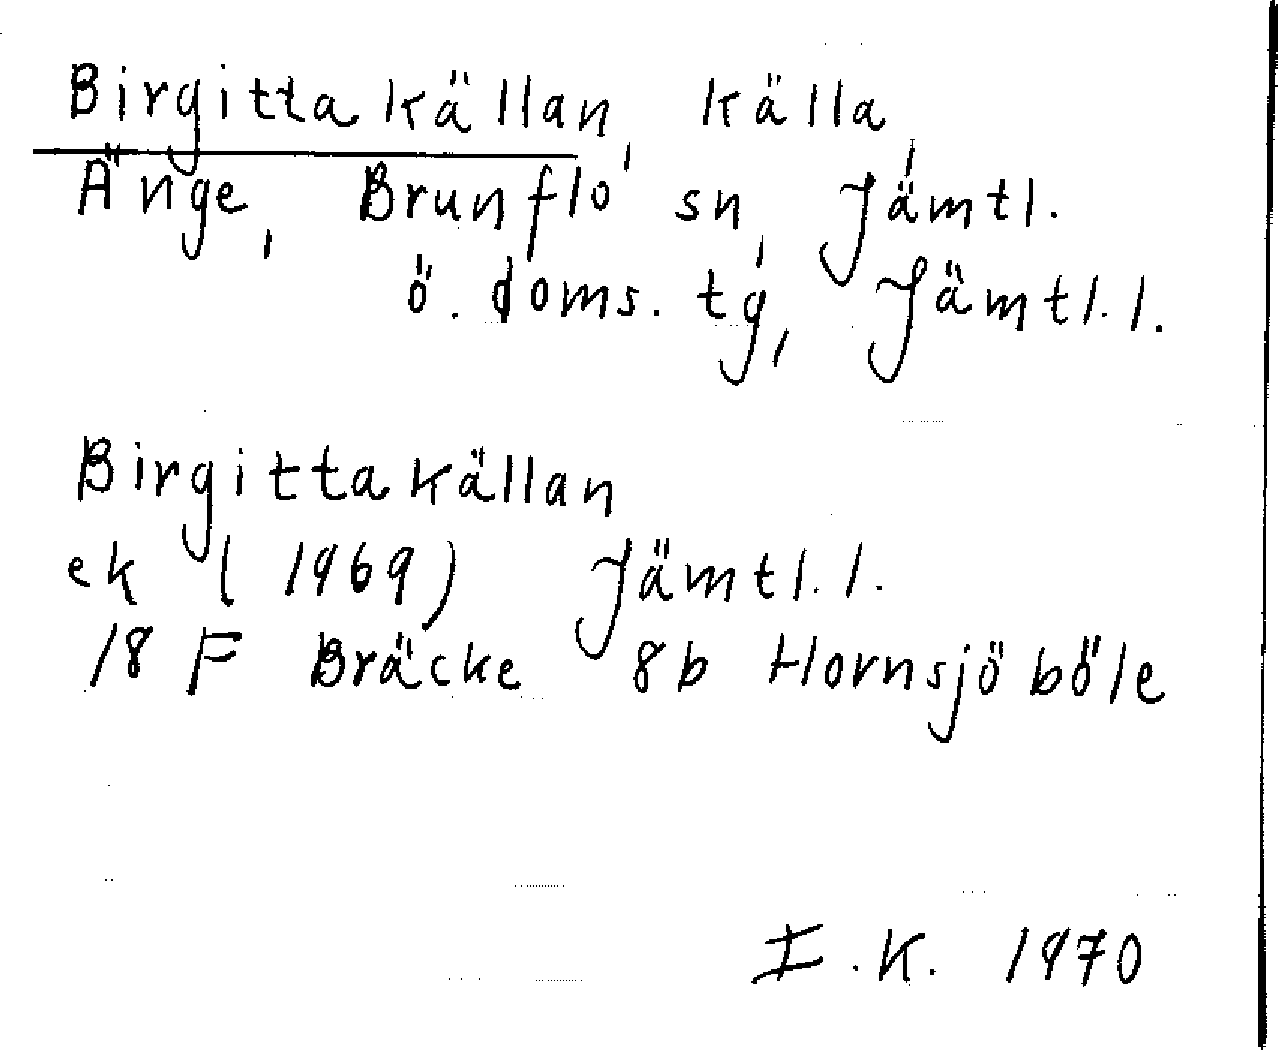 Birgittakällan, källa,
Änge, Brunflo sn, Jämtl.
ö. doms. tg, Jämtl. l.
Birgittakällan
ek (1969) Jämtl. l.
18 F Bräcke 8b Hornsjöböle
I. K. 1970